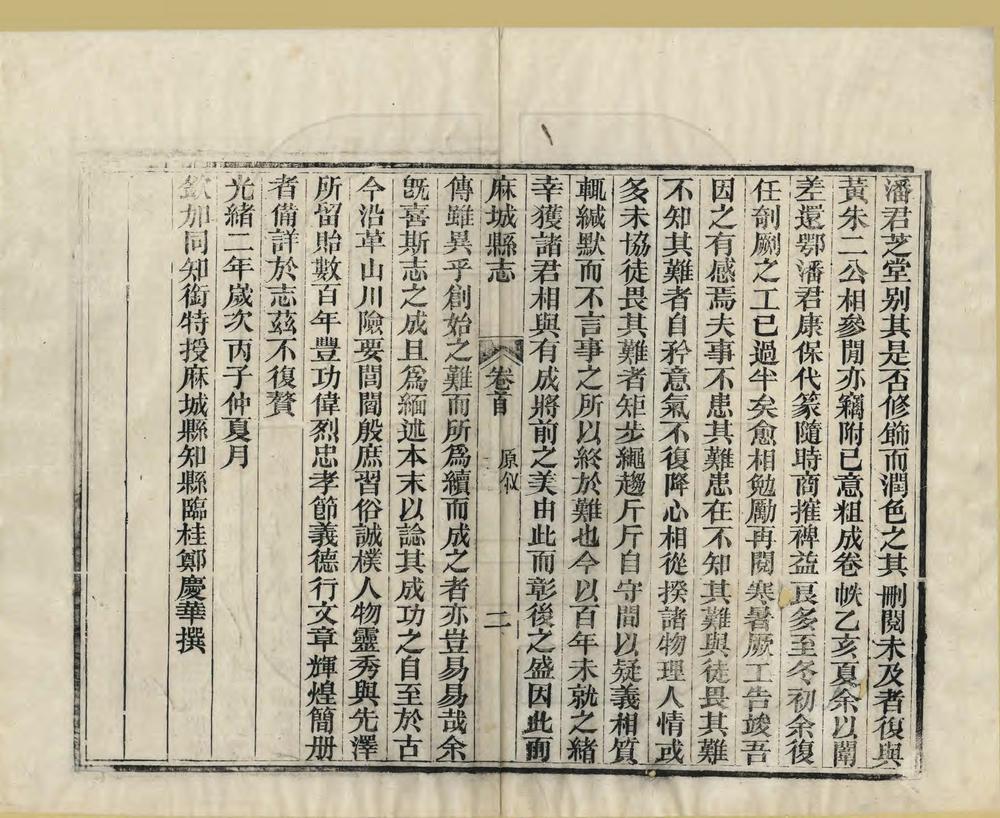 潘君芝堂別其是否修飾而潤色之其刪閱未及者復與
黃朱二公相參閒亦竊附已意粗成卷帙乙亥夏余以闈
差還鄂潘君康保代篆隨時商搉裨益良多至冬初余復
任剞劂之工已過半矣愈相勉勵再閱寒暑厥工告竣吾
因之有感焉夫事不患其難患在不知其難與徒畏其難
不知其難者自矜意氣不復降心相從揆諸物理人情或
多未協徒畏其難者矩步繩趨斤斤自守間以疑義相質
輒緘默而不言事之所以終於難也今以百年未就之緒
幸獲諸君相與有成將前之美由此而彰後之盛因此而
麻城縣志 卷首 原敘 二
傳雖異乎創始之難而所爲續而成之者亦豈易易哉余
旣喜斯志之成且爲緬述本末以諗其成功之自至於古
今沿革山川險要閭閻殷庶習俗誠樸人物靈秀與先澤
所留貽數百年豐功偉烈忠孝節義德行文章輝煌簡册
者備詳於志茲不復贅
光緒二年歲次丙子仲夏月
欽加同知銜特授麻城縣知縣臨桂鄭慶華撰